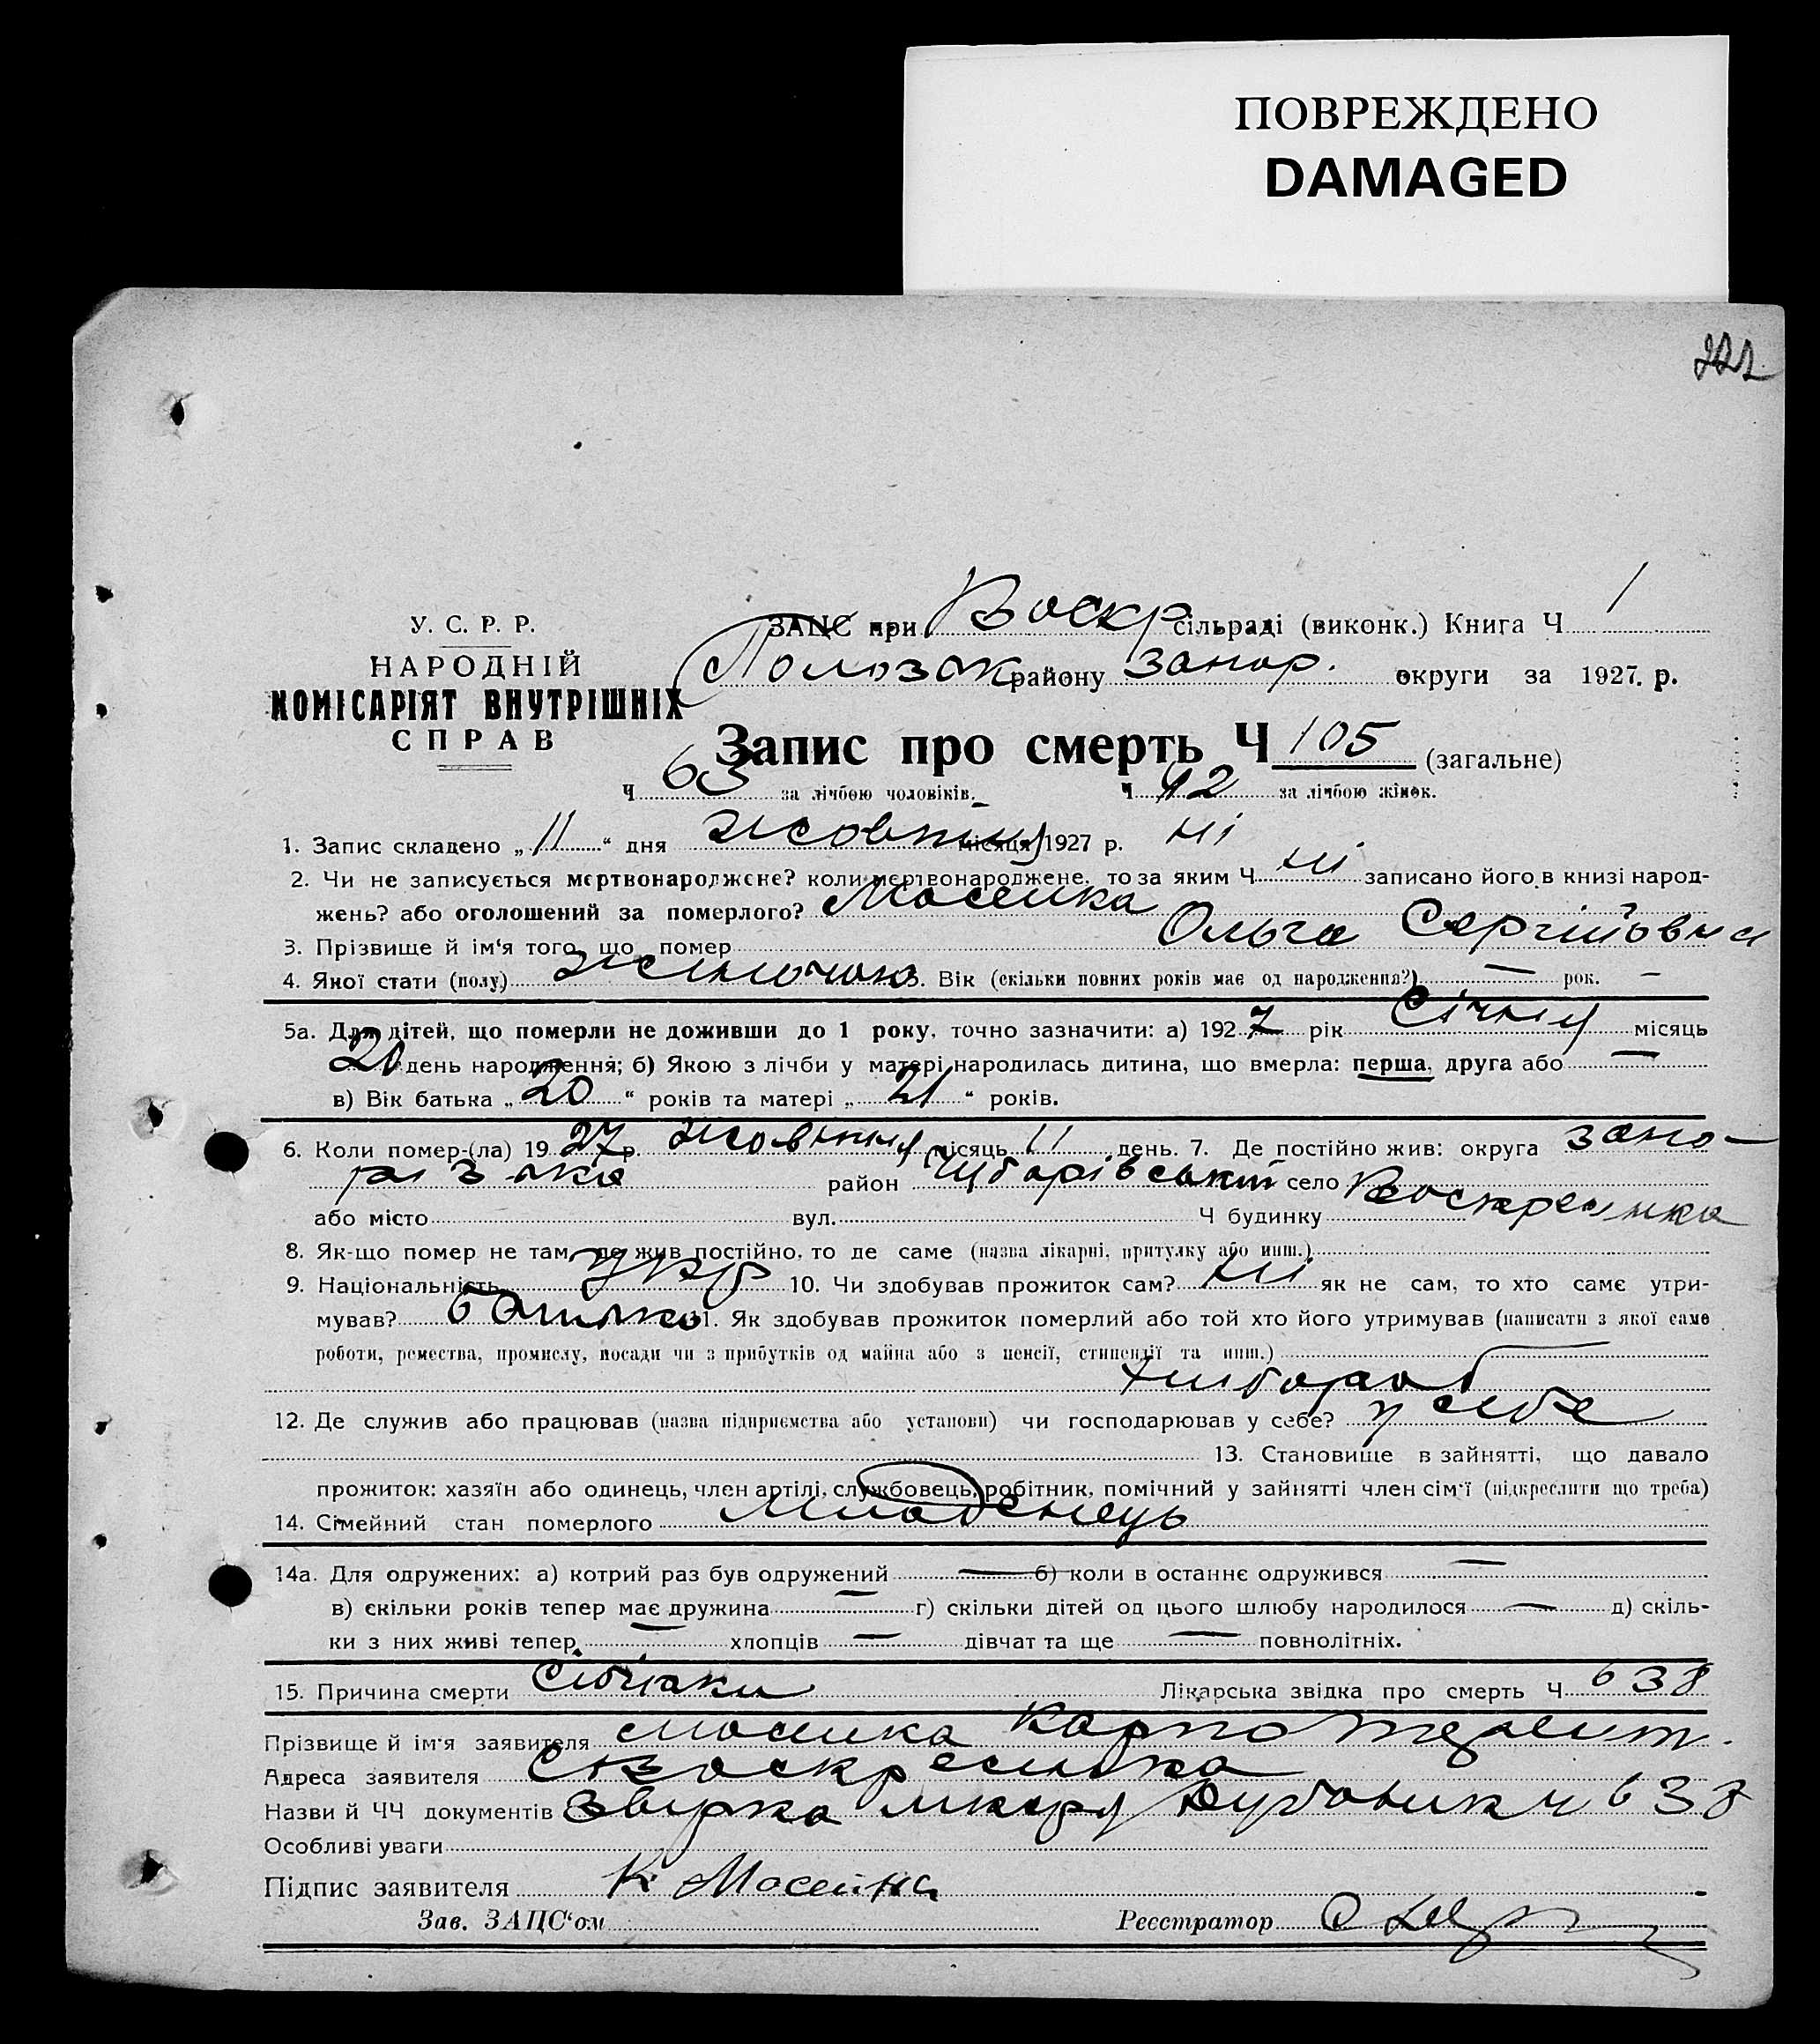 ПОВРЕЖДЕНО
DAMAGED
222
У. С. Р. Р.
НАРОДНІЙ
КОМІСАРІЯТ ВНУТРІШНІХ
СПРАВ
ЗАПС при Воскр сільраді (виконк.) Книга Ч 1
району Запор. округи за 1927. р.
Запис про смерть Ч 105 (загальне)
Ч 63 за лічбою чоловіків. Ч 42 за лічбою жінок.
1. Запис складено „ 11 “ дня жовтня місяця 1927 р. ні
2. Чи не записується мертвонароджене? коли мертвонароджене, то за яким Ч ні записано його в книзі народ-
жень? або оголошений за померлого? Мосейка
3. Прізвище й ім‘я того, що помер Ольга Сергійовна
4. Якої стати (полу) жиночок 5. Вік (скільки повних років має од народження?) — рок. —
5а. Для дітей, що померли не доживши до 1 року, точно зазначити: а) 192 7 рік Січня місяць
20 день народження; б) Якою з лічби у матері народилась дитина, що вмерла: перша, друга або —
в) Вік батька „ 20 “ років та матері „ 21 “ років.
6. Коли помер-(ла) 19 27 р. жовтня місяць 11 день. 7. Де постійно жив: округа запо-
різька район Чубарівський село Воскресинка
або місто вул. Ч будинку
8. Як-що помер не там, де жив постійно, то де саме (назва лікарні, притулку або инш.)
9. Національність укр 10. Чи здобував прожиток сам? ні як не сам, то хто саме утри-
мував? батько 11. Як здобував прожиток померлий або той хто його утримував (написати з якої саме
роботи, ремества, промислу, посади чи з прибутків од майна або з пенсії, стипендії та инш.)
хлібороб
12. Де служив або працював (назва підприємства або установи) чи господарював у себе? у себе
13. Становище в зайнятті, що давало
прожиток: хазяїн або одинець, член артілі, службовець, робітник, помічний у зайнятті член сім‘ї (підкреслити що треба)
14. Сімейний стан померлого младенець
14а. Для одружених: а) котрий раз був одружений — б) коли в останнє одружився —
в) скільки років тепер має дружина — г) скільки дітей од цього шлюбу народилося — д) скіль-
ки з них живі тепер — хлопців — дівчат та ще — повнолітніх.
15. Причина смерти Лікарська звідка про смерть Ч 638
Прізвище й ім‘я заявителя Мосейка Карпо
Адреса заявителя С Воскресинка
Назви й ЧЧ документів ч 638
Особливі уваги
Підпис заявителя К Мосейка
Зав. ЗАПС‘ом Реєстратор